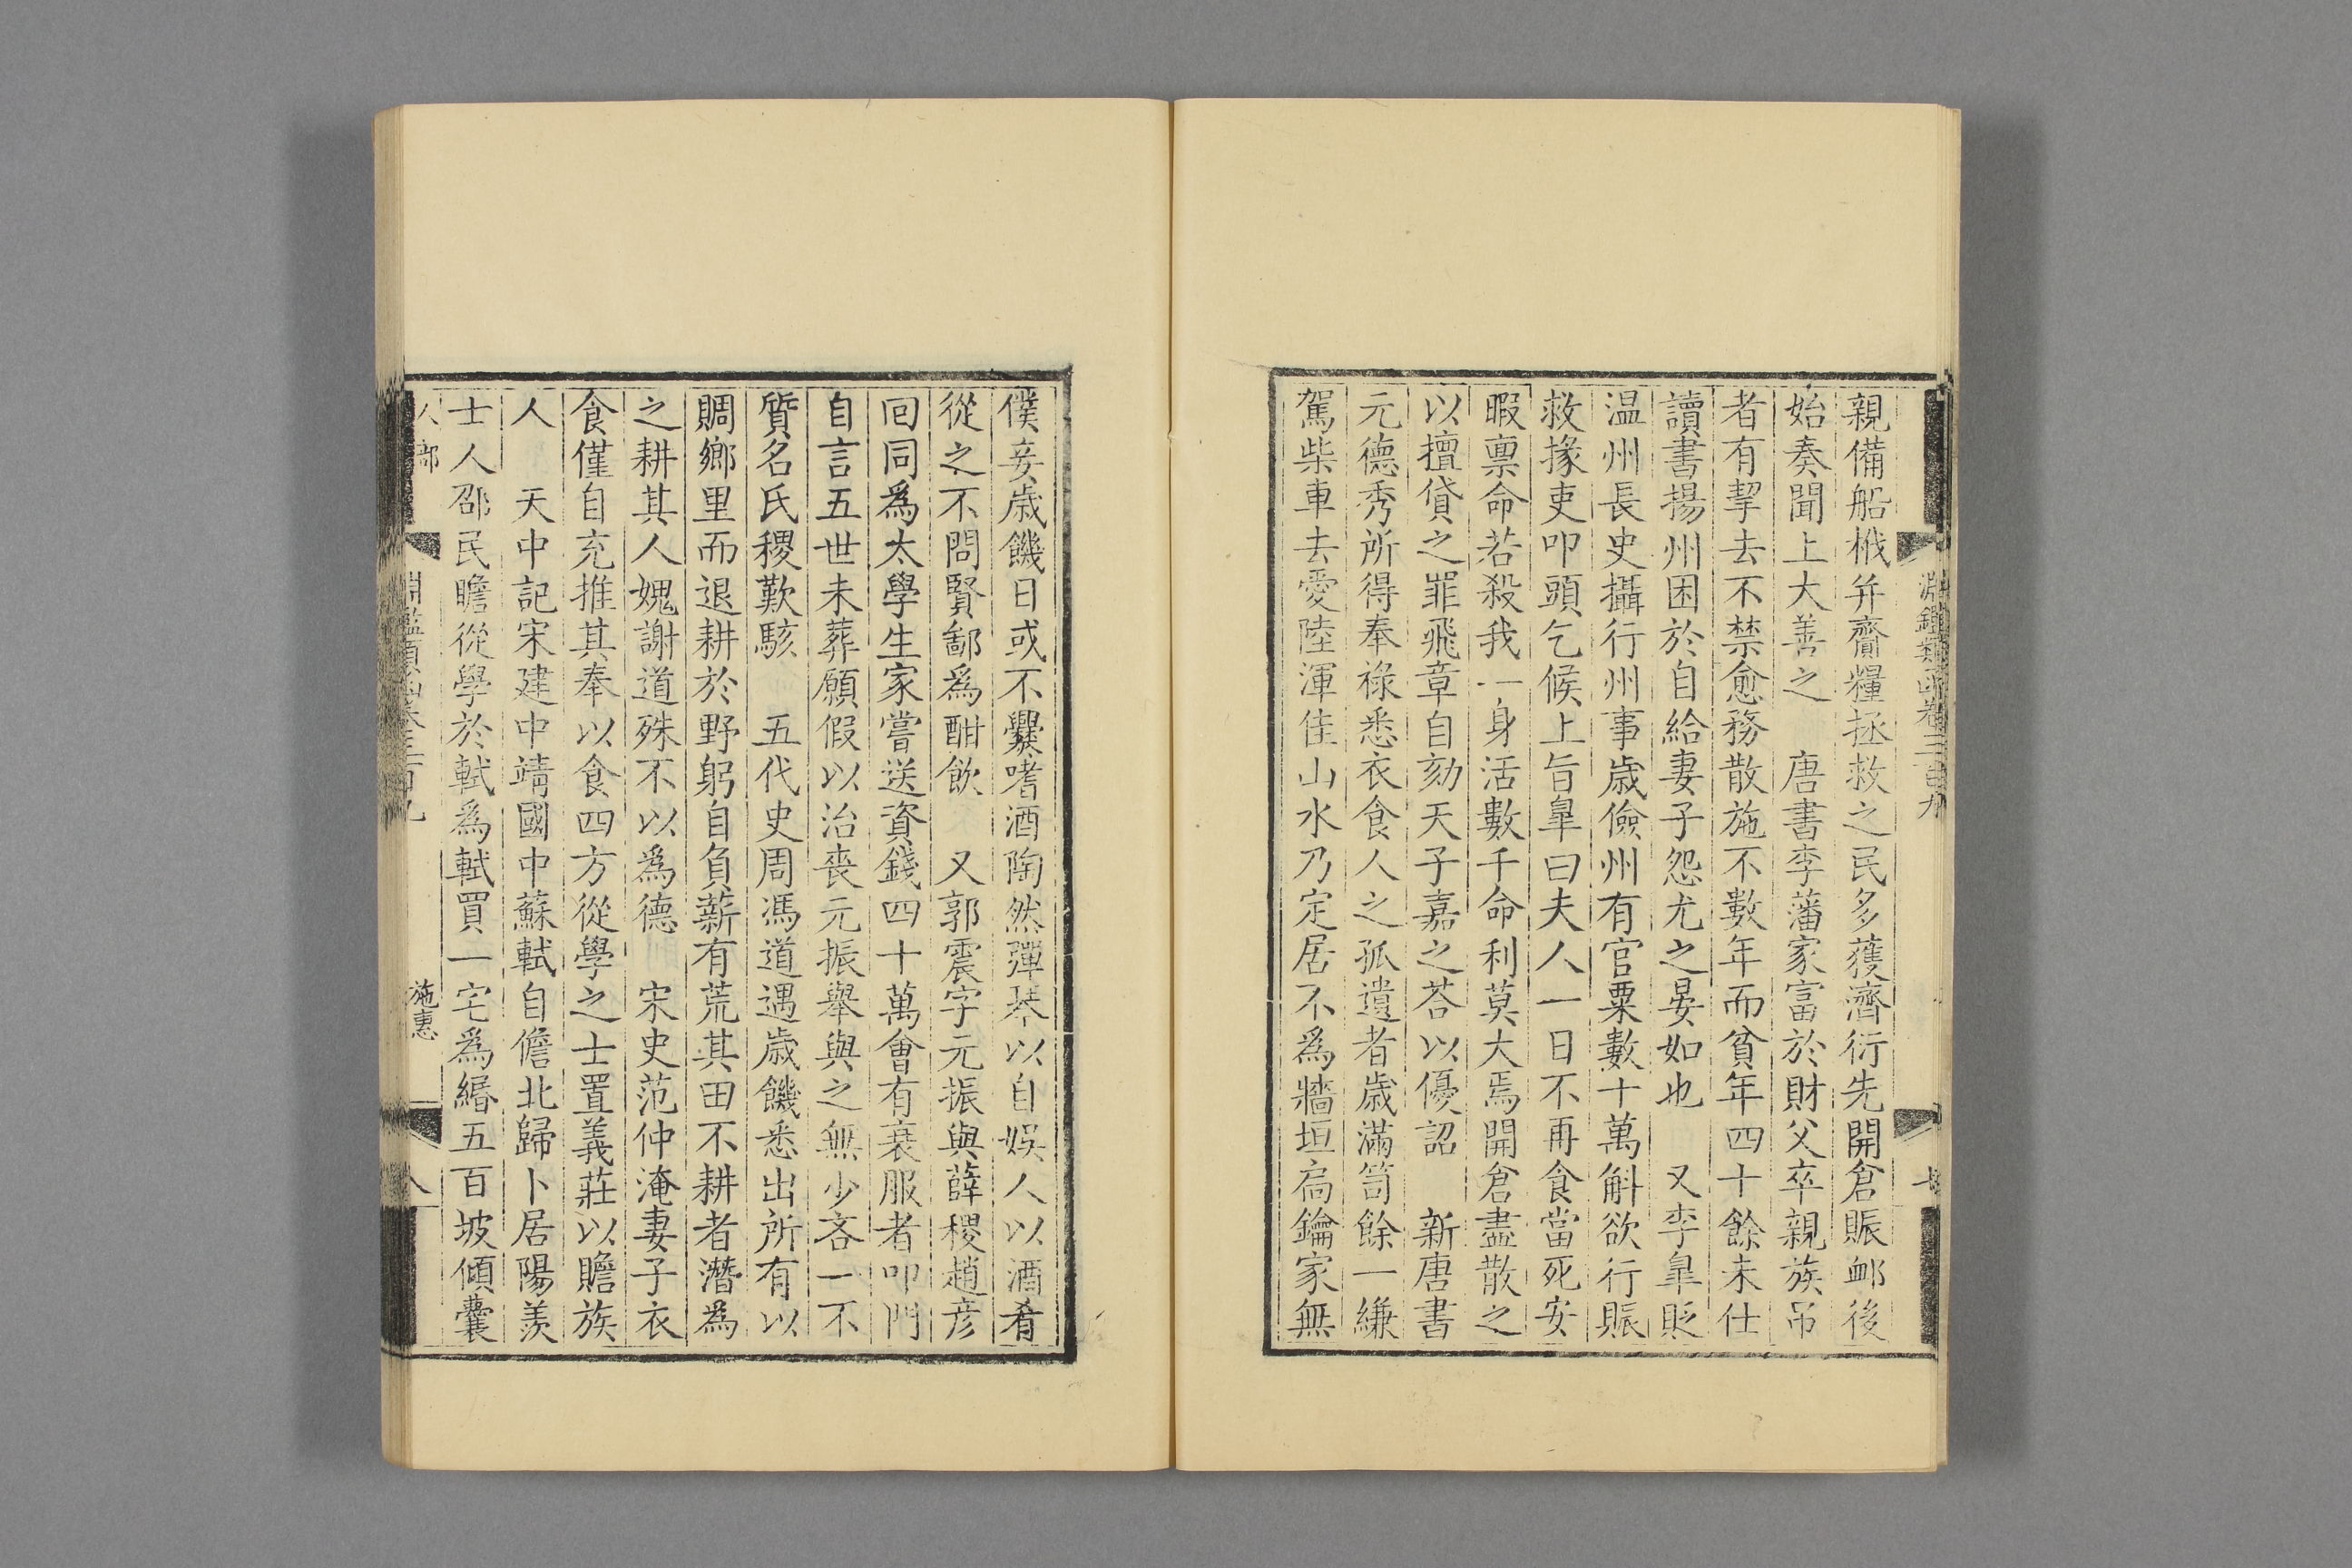 親備船栰并齎糧拯救之民多獲濟衍先開倉賑䘏後
始奏聞上大善之　唐書李藩家富於財父卒親族吊
者有挈去不禁愈務散施不數年而貧年四十餘未仕
讀書揚州困於自給妻子怨尤之晏如也　又李臯貶
温州長史攝行州事歳儉州有官粟數十萬斛欲行賑
救掾吏叩頭乞候上旨臯曰夫人一日不再食當死安
暇禀命若殺我一身活數千命利莫大焉開倉盡散之
以擅貸之罪飛章自劾天子嘉之荅以優詔　新唐書
元德秀所得奉祿悉衣食人之孤遺者歳滿笥餘一縑
駕柴車去愛陸渾佳山水乃定居不為牆垣扃鑰家無
僕妾歳饑日或不爨嗜酒陶然彈琴以自娱人以酒肴
從之不問賢鄙爲酣飲　又郭震字元振與薛稷趙彦
囘同爲太學生家嘗送資錢四十萬會有衰服者叩門
自言五世未葬願假以治丧元振舉與之無少吝一不
質名氏稷歎駭　五代史周馮道遇歳饑悉出所有以
賙鄉里而退耕於野躬自負薪有荒其田不耕者潛為
之耕其人媿謝道殊不以為德　宋史范仲淹妻子衣
食僅自充推其奉以食四方從學之士置義莊以贍族
人　天中記宋建中靖國中蘇軾自儋北歸卜居陽羨
士人邵民瞻從學於軾為軾買一宅為緡五百坡傾囊
人部　淵鑑類函卷三百九　施惠　八